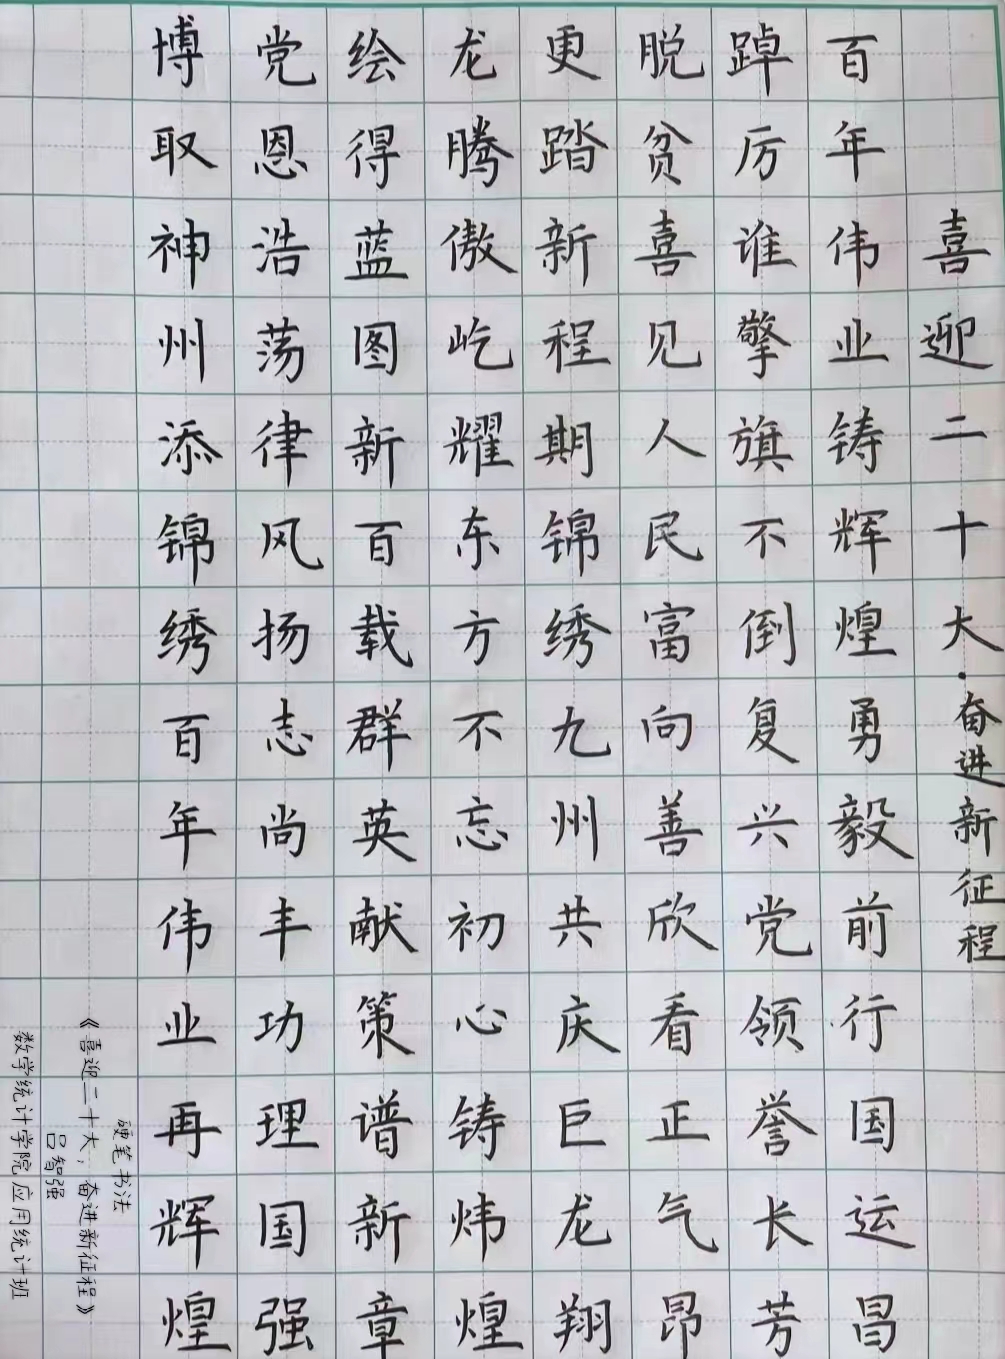 喜迎二十大·奋进新征程
百年伟业铸辉煌勇毅前行国运昌
踔厉谁擎旗不倒复兴党领誉长芳
脱贫喜见人民富向善欣看正气昂
更踏新程期锦绣九州共庆巨龙翔
龙腾傲屹耀东方不忘初心铸炜煌
绘得蓝图新百载群英献策谱新章
党恩浩荡律风扬志尚丰功理国强
博取神州添锦绣百年伟业再辉煌
硬笔书法
《喜迎二十大，奋进新征程》
吕智强
数学统计学院应用统计班